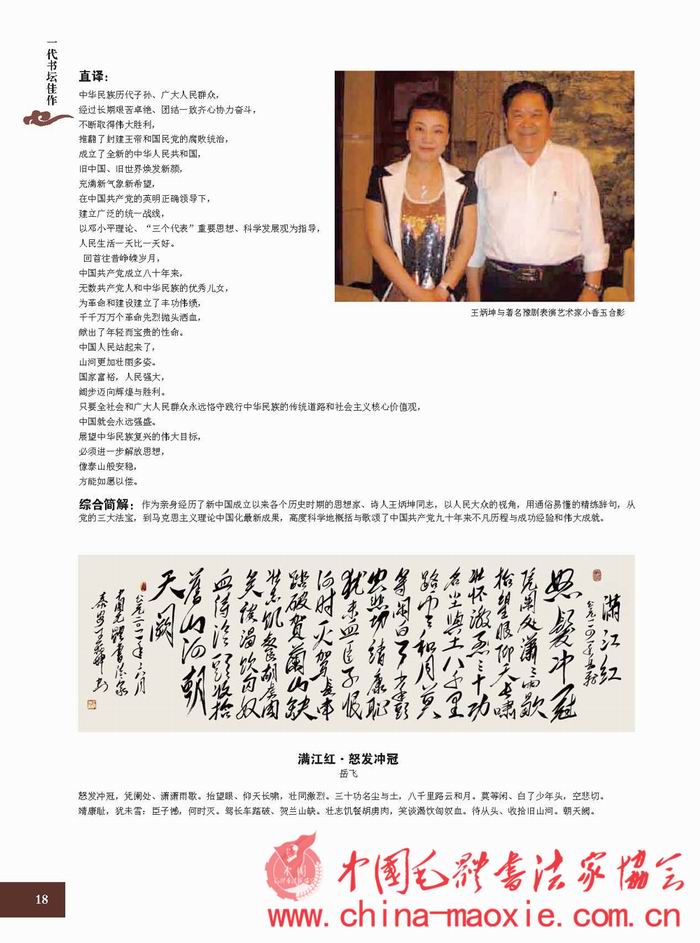 一代书坛佳作
直译：
中华民族历代子孙、广大人民群众，
经过长期艰苦卓绝、团结一致齐心协力奋斗，
不断取得伟大胜利，
推翻了封建王帝和国民党的腐败统治，
成立了全新的中华人民共和国，
旧中国、旧世界焕发新颜，
充满新气象新希望，
在中国共产党的英明正确领导下，
建立广泛的统一战线，
以邓小平理论、“三个代表”重要思想、科学发展观为指导，
人民生活一天比一天好。
回首往昔峥嵘岁月，
中国共产党成立八十年来，
无数共产党人和中华民族的优秀儿女，
为革命和建设建立了丰功伟绩，
千千万万个革命先烈抛头洒血，
献出了年轻而宝贵的性命。
中国人民站起来了，
山河更加壮丽多姿。
国家富裕，人民强大，
阔步迈向辉煌与胜利。
只要全社会和广大人民群众永远恪守践行中华民族的传统道路和社会主义核心价值观，
中国就会永远强盛。
展望中华民族复兴的伟大目标，
必须进一步解放思想，
像泰山般安稳，
方能如愿以偿。
王炳坤与著名豫剧表演艺术家小香玉合影
综合简解：作为亲身经历了新中国成立以来各个历史时期的思想家、诗人王炳坤同志，以人民大众的视角，用通俗易懂的精练辞句，从
党的三大法宝，到马克思主义理论中国化最新成果，高度科学地概括与歌颂了中国共产党九十年来不凡历程与成功经验和伟大成就。
满江红
怒髮冲冠
凭阑处潇潇雨歇
抬望眼仰天长啸
壮怀激烈三十功
名尘与土八千里
路云和月莫
等闲白了少年头
空悲切靖康耻
犹未雪臣子恨
何时灭驾长车
踏破贺兰山缺
壮志饥餐胡虏肉
笑谈渴饮匈奴
血待从头收拾
旧山河朝
天阙
满江红·怒发冲冠
岳飞
怒发冲冠，凭阑处、潇潇雨歇。抬望眼、仰天长啸，壮同激烈。三十功名尘与土，八千里路云和月。莫等闲、白了少年头，空悲切。
靖康耻，犹未雪；臣子憾，何时灭。驾长车踏破、贺兰山缺。壮志饥餐胡虏肉，笑谈渴饮匈奴血。待从头、收拾旧山河。朝天阙。
中國毛體書法家協会
www.china-maoxie.com.cn
18